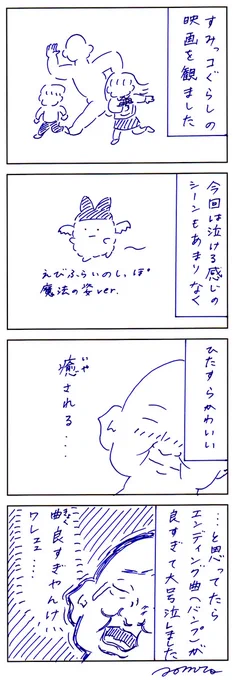 すみっコぐらしの
映画を観ました
今回は泣ける感じの
シーンもあまりなく
えびふらいのしっぽ
魔法の姿ver.
ひたすらかわいい
いや
癒される…
…と思ってたら
エンディング曲(バンプ)が
良すぎて大号泣しました
きょく
曲良すぎやんけ…
ワレェェ…